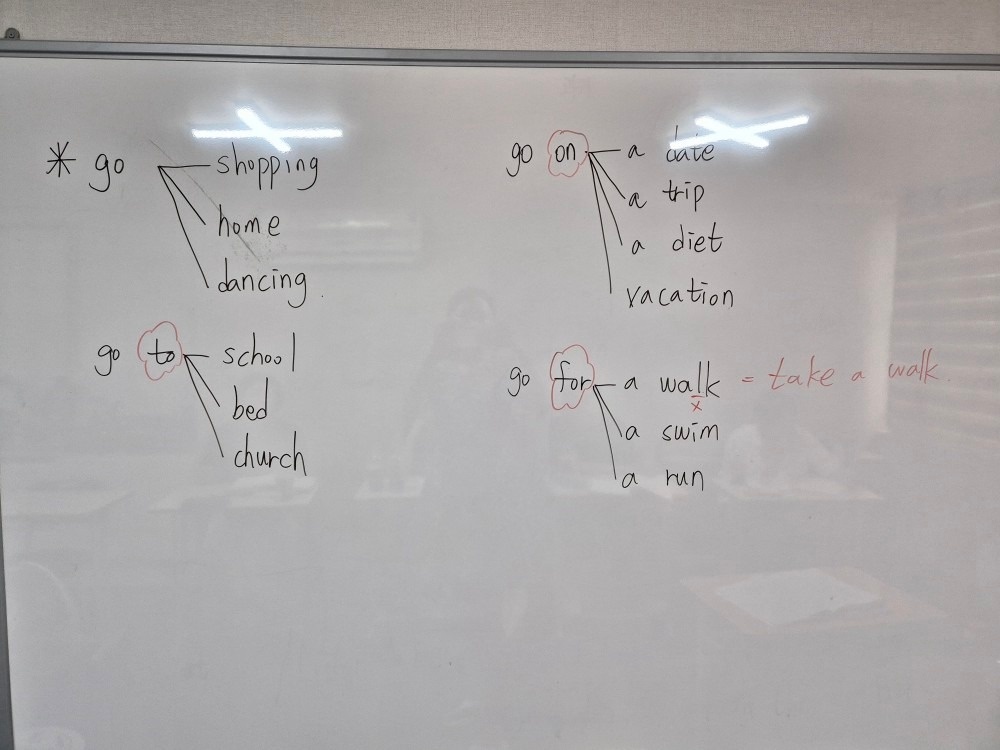 * go shopping
home
dancing
go to school
bed
church
go on a date
a trip
a diet
vacation
go for a walk = take a walk.
x
a swim
a run